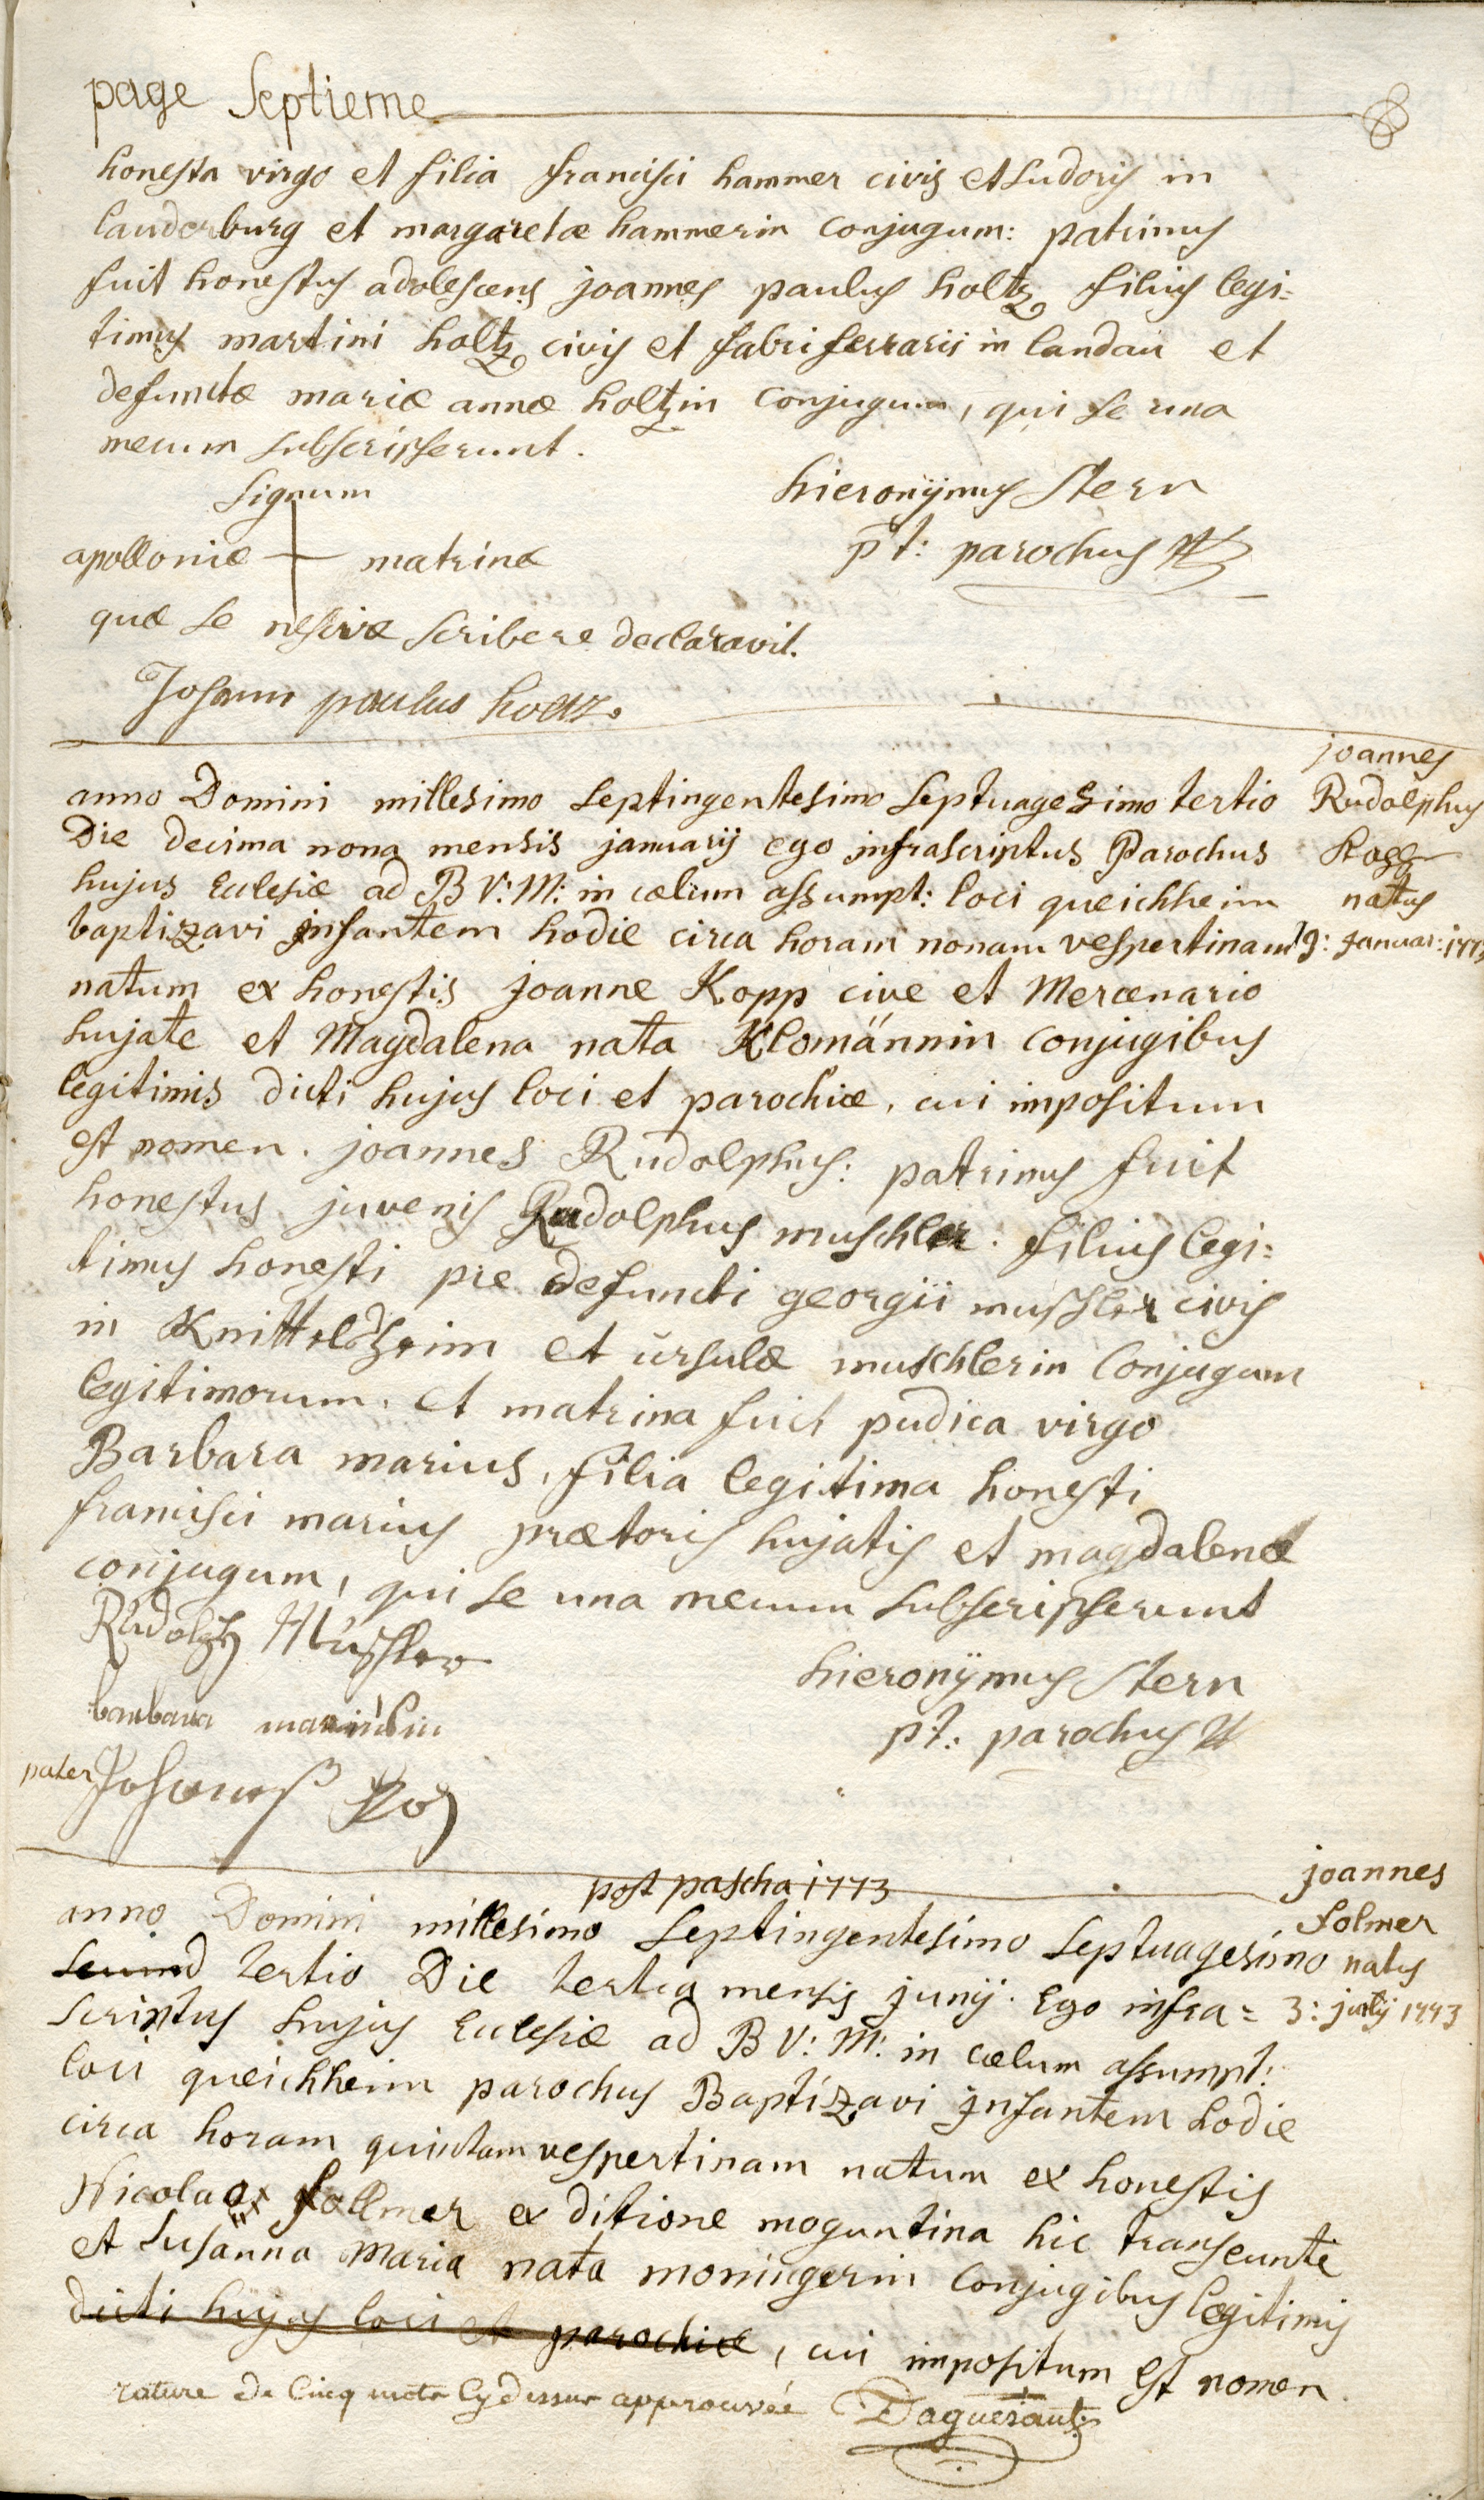 page Septieme
honesta virgo et filia francisci hammer civis et sudoris in
lauderburg et margaretæ hammerin conjugum: patrinus
fuit honestus adolescens joannes paulus holtz filius legi=
timus martini holtz civis et fabri ferrarii in landau et
defunctæ mariæ annæ holtzin conjugum, qui se una
mecum subscripserunt.
Signum
hieronÿmus Stern
apolloniæ + matrinæ
pt: parochus
quæ se nescire scribere declaravit.
Johann paulus holtz.
joannes
Rudolphus
Kopp
natus
19: Januar: 1773
anno Domini millesimo Septingentesimo Septuagesimo tertio
Die decima nona mensis januarij ego infrascriptus Parochus
hujus Ecclesiæ ad B V: M: in cælum assumpt: loci queichheim
baptizavi jnfantem hodie circa horam nonam vespertinam
natum ex honestis joanne Kopp cive et Mercenario
hujate et Magdalena nata Klomännin conjugibus
legitimis dicti hujus loci et parochiæ, cui impositum
est nomen. joannes Rudolphus: patrinus fuit
honestus juvenis Rudolphus muschler: filius legi=
timus honesti pie defuncti georgii muschler civis
in Knittelsheim et ursulæ muschlerin Conjugum
legitimorum. et matrina fuit pudica virgo
Barbara marius, filia legitima honesti
francisci marius prætoris hujatis et magdalenæ
conjugum, qui se una mecum subscripserunt
Rudolph Muschler
hieronÿmus Stern
barbara
pt: parochus
pater Johannes
post pascha 1773
joannes
folmer
natus
3: junij 1773
anno Domini millesimo Septingentesimo Septuagesimo
secund tertio Die tertia mensis junij. Ego infra=
scriptus hujus Ecclesiæ ad B V: M: in cælum assumpt:
loci queichheim parochus Baptizavi jnfantem hodie
circa horam quintam vespertinam natum ex honestis
Nicolao follmer ex ditione moguntina hic transeunte
et Susanna Maria nata moningerin Conjugibus legitimis
dicti hujus loci et parochiæ, cui impositum est nomen.
rature de Cinq mots Cydessus approuvée Daguerant